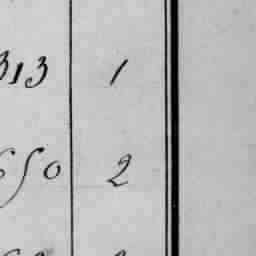 313 1
650 2